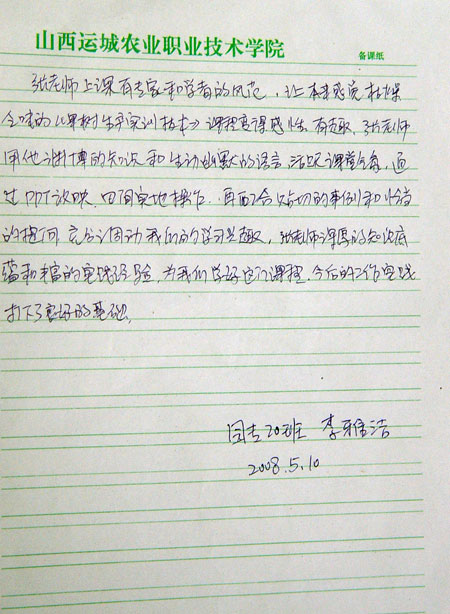 山西运城农业职业技术学院
备课纸
张老师上课有专家和学者的风范，让本来感觉枯燥
乏味的《果树生产实训技术》课程变得感性、有趣，张老师
用他渊博的知识和生动幽默的语言，活跃课堂气氛，通
过PPT放映、田间实地操作，再配合贴切的事例和恰当
的提问，充分调动我们的学习兴趣，张老师浑厚的知识底
蕴和丰富的实践经验，为我们学好这门课程，今后的工作实践
打下了良好的基础。
园专20班 李雅洁
2008.5.10